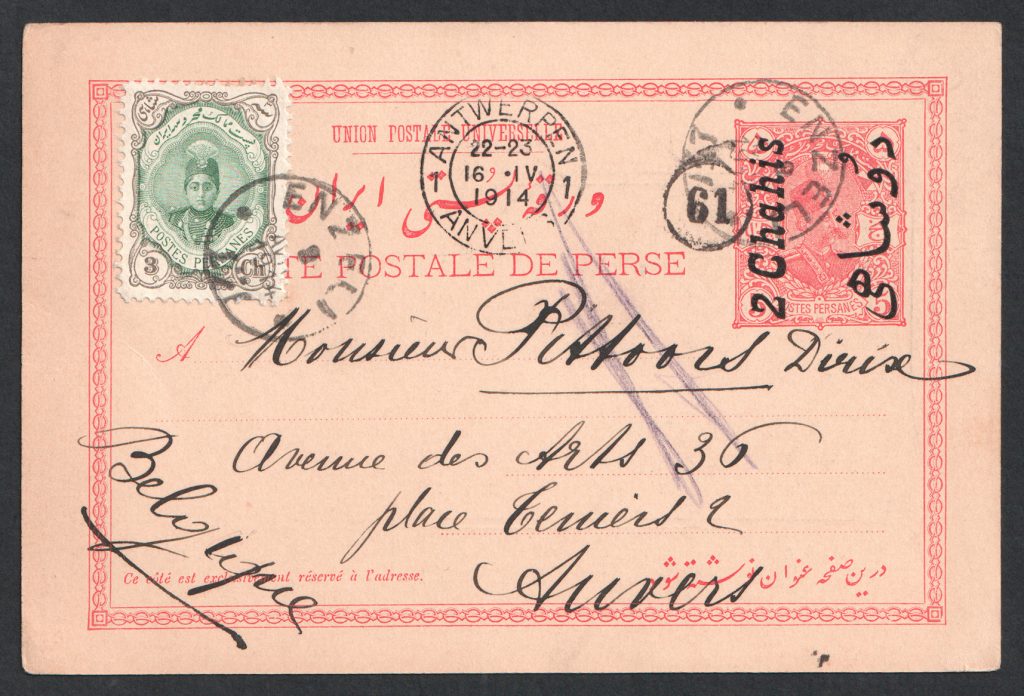 UNION POSTALE UNIVERSELLE
ورقه پستی ایران
CARTE POSTALE DE PERSE
POSTES PERSANES
3 Ch.
ENZELI
ANTWERPEN
1 22-23 1
16 · IV
1914
ANVERS
61
ENZELI
2 Chahis
دو شاهی
5
POSTES PERSANES
A Monsieur Pittoors Dirix
Avenue des Arts 36
place Teniers 2
Anvers
Belgique
Ce côté est exclusivement réservé à l'adresse.
درین صفحه عنوان نوشته شود